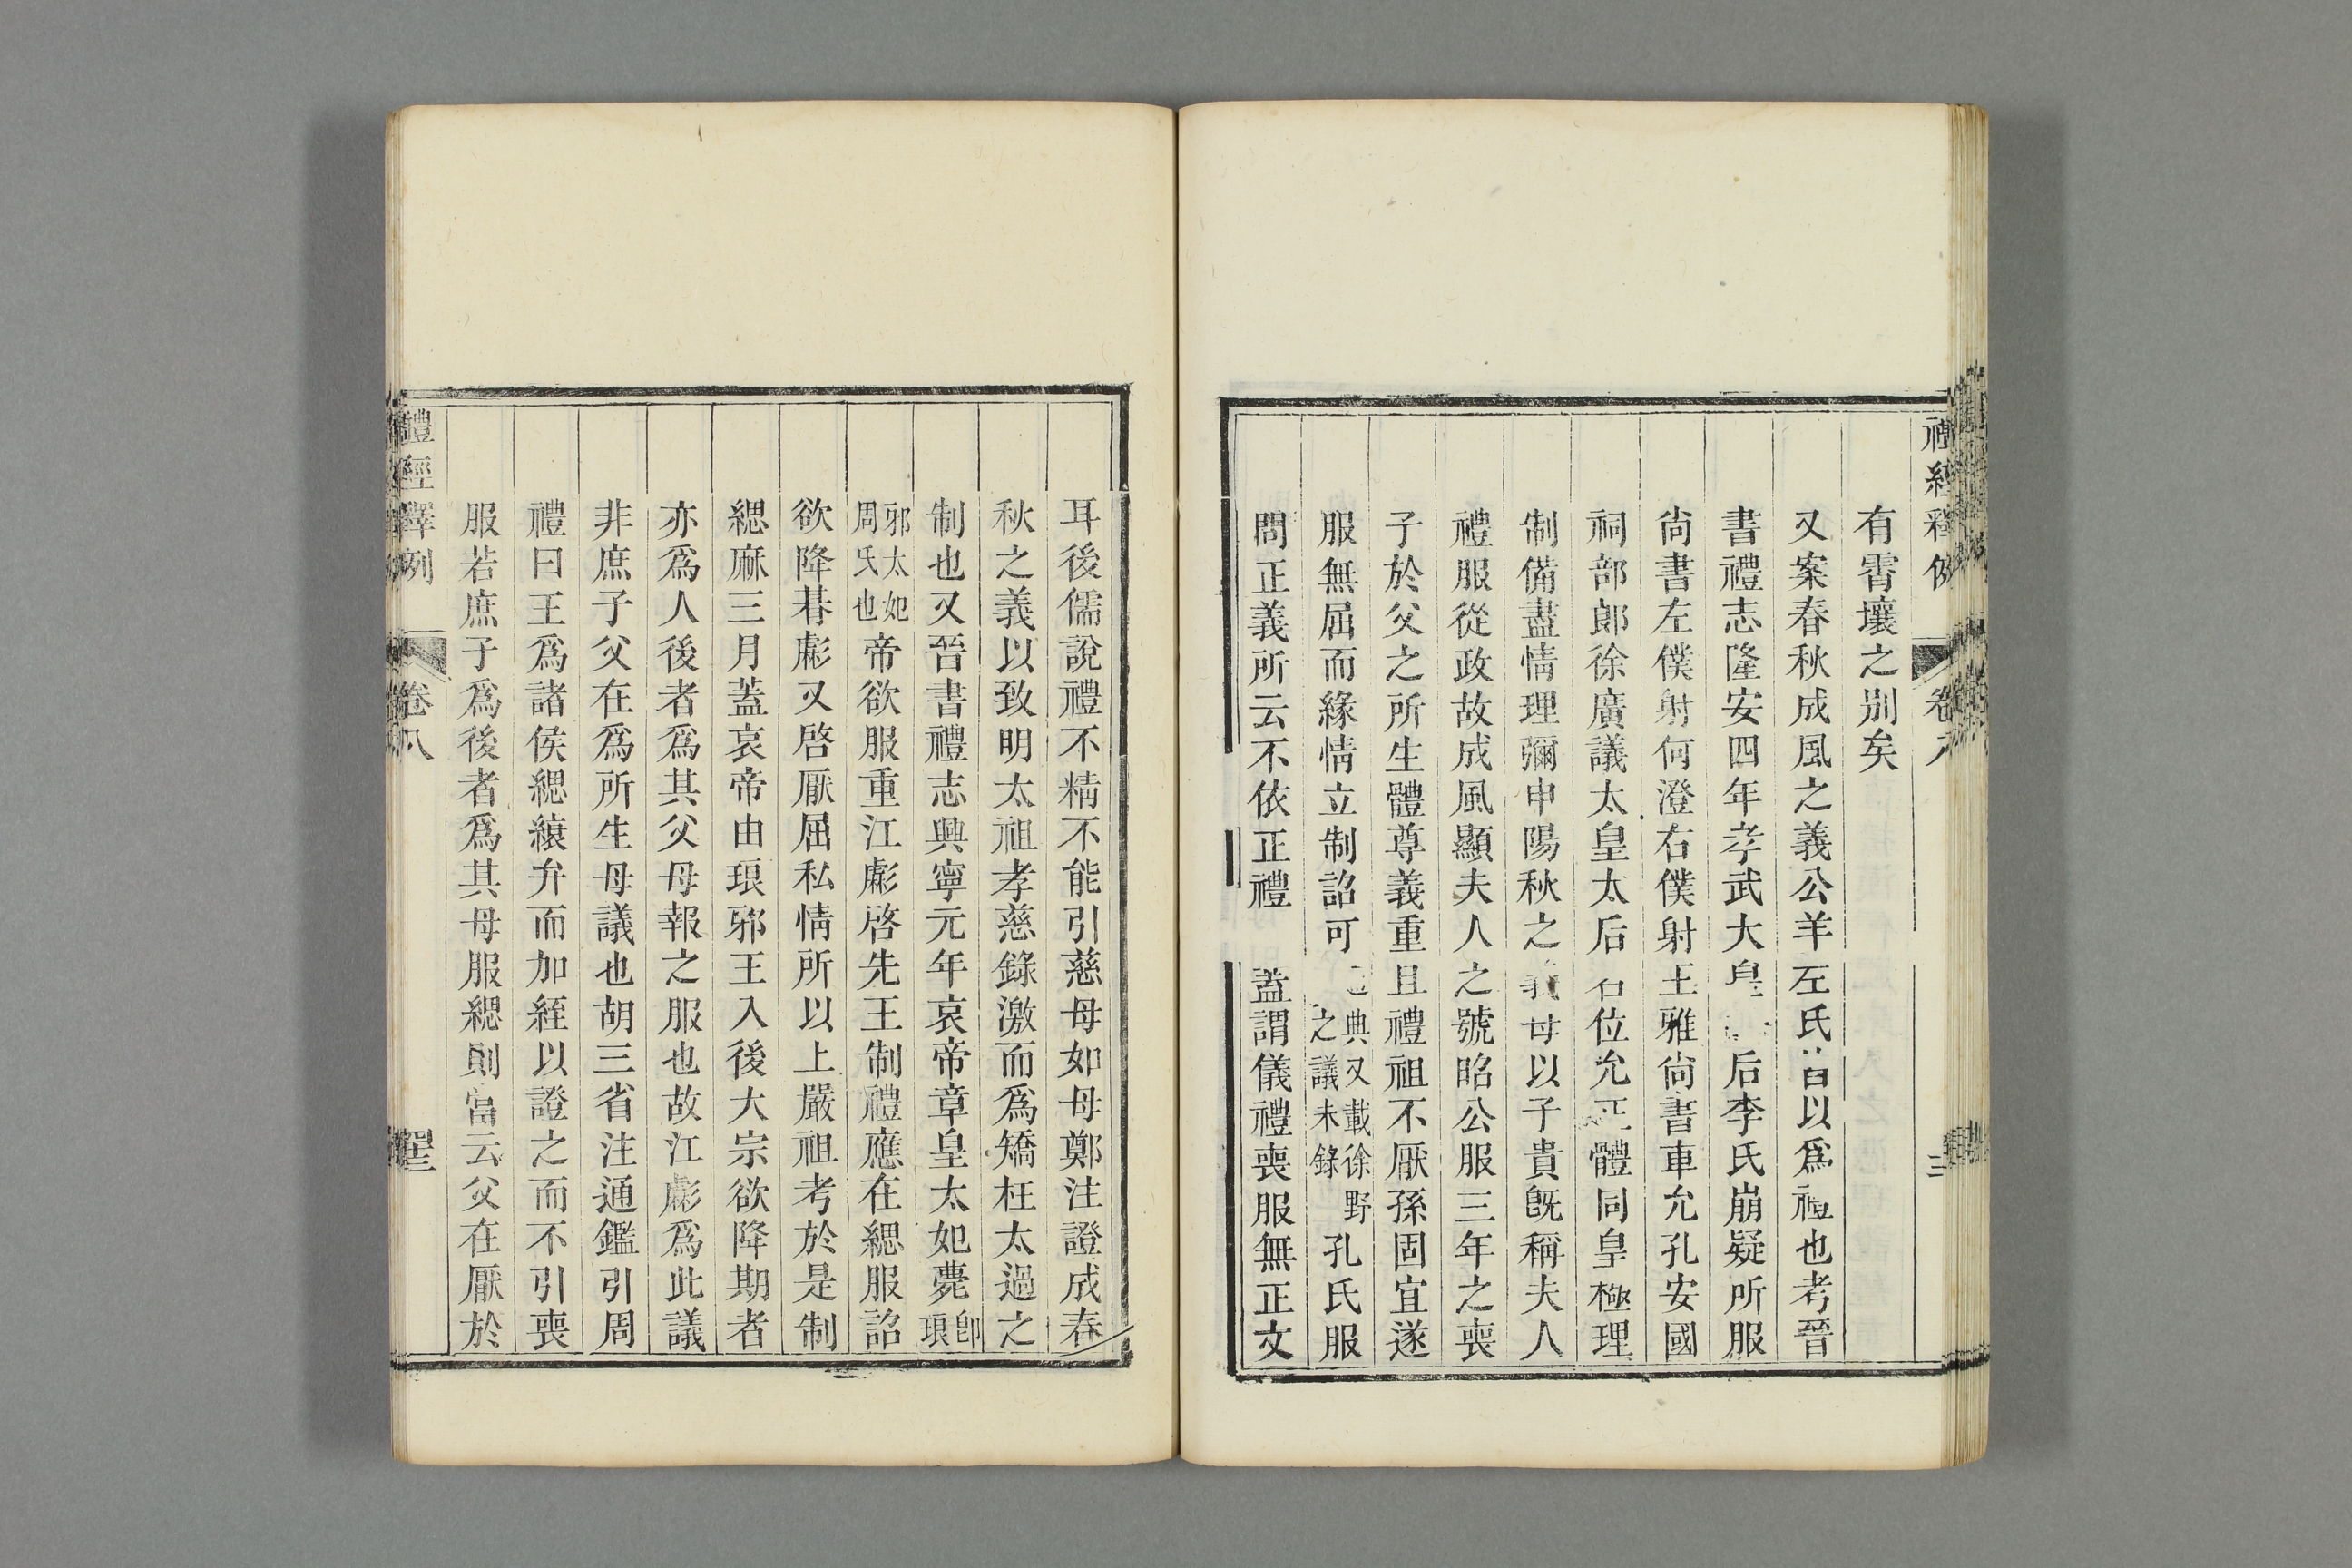 禮經釋例 卷八
有霄壤之别矣
又案春秋成風之義公羊左氏皆以爲禮也考晉
書禮志隆安四年孝武大皇 后李氏崩疑所服
尙書左僕射何澄右僕射王雅尙書車允孔安國
祠部郎徐廣議太皇太后名位允正體同皇極理
制備盡情理彌申陽秋之義母以子貴旣稱夫人
禮服從政故成風顯夫人之號昭公服三年之喪
子於父之所生體尊義重且禮祖不厭孫固宜遂
服無屈而緣情立制詔可 典又載徐野
之議未錄 孔氏服
問正義所云不依正禮 蓋謂儀禮喪服無正文
耳後儒說禮不精不能引慈母如母鄭注證成春
秋之義以致明太祖孝慈錄激而爲矯枉太過之
制也又晉書禮志興寧元年哀帝章皇太妃薨卽
琅
邪太妃
周氏也帝欲服重江虨啓先王制禮應在緦服詔
欲降朞虨又啓厭屈私情所以上嚴祖考於是制
緦麻三月蓋哀帝由琅邪王入後大宗欲降期者
亦爲人後者爲其父母報之服也故江虨爲此議
非庶子父在爲所生母議也胡三省注通鑑引周
禮曰王爲諸侯緦縗弁而加絰以證之而不引喪
服若庶子爲後者爲其母服緦則當云父在厭於
禮經釋例 卷八